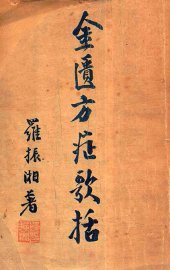 金匱方症歌括
羅振湘著